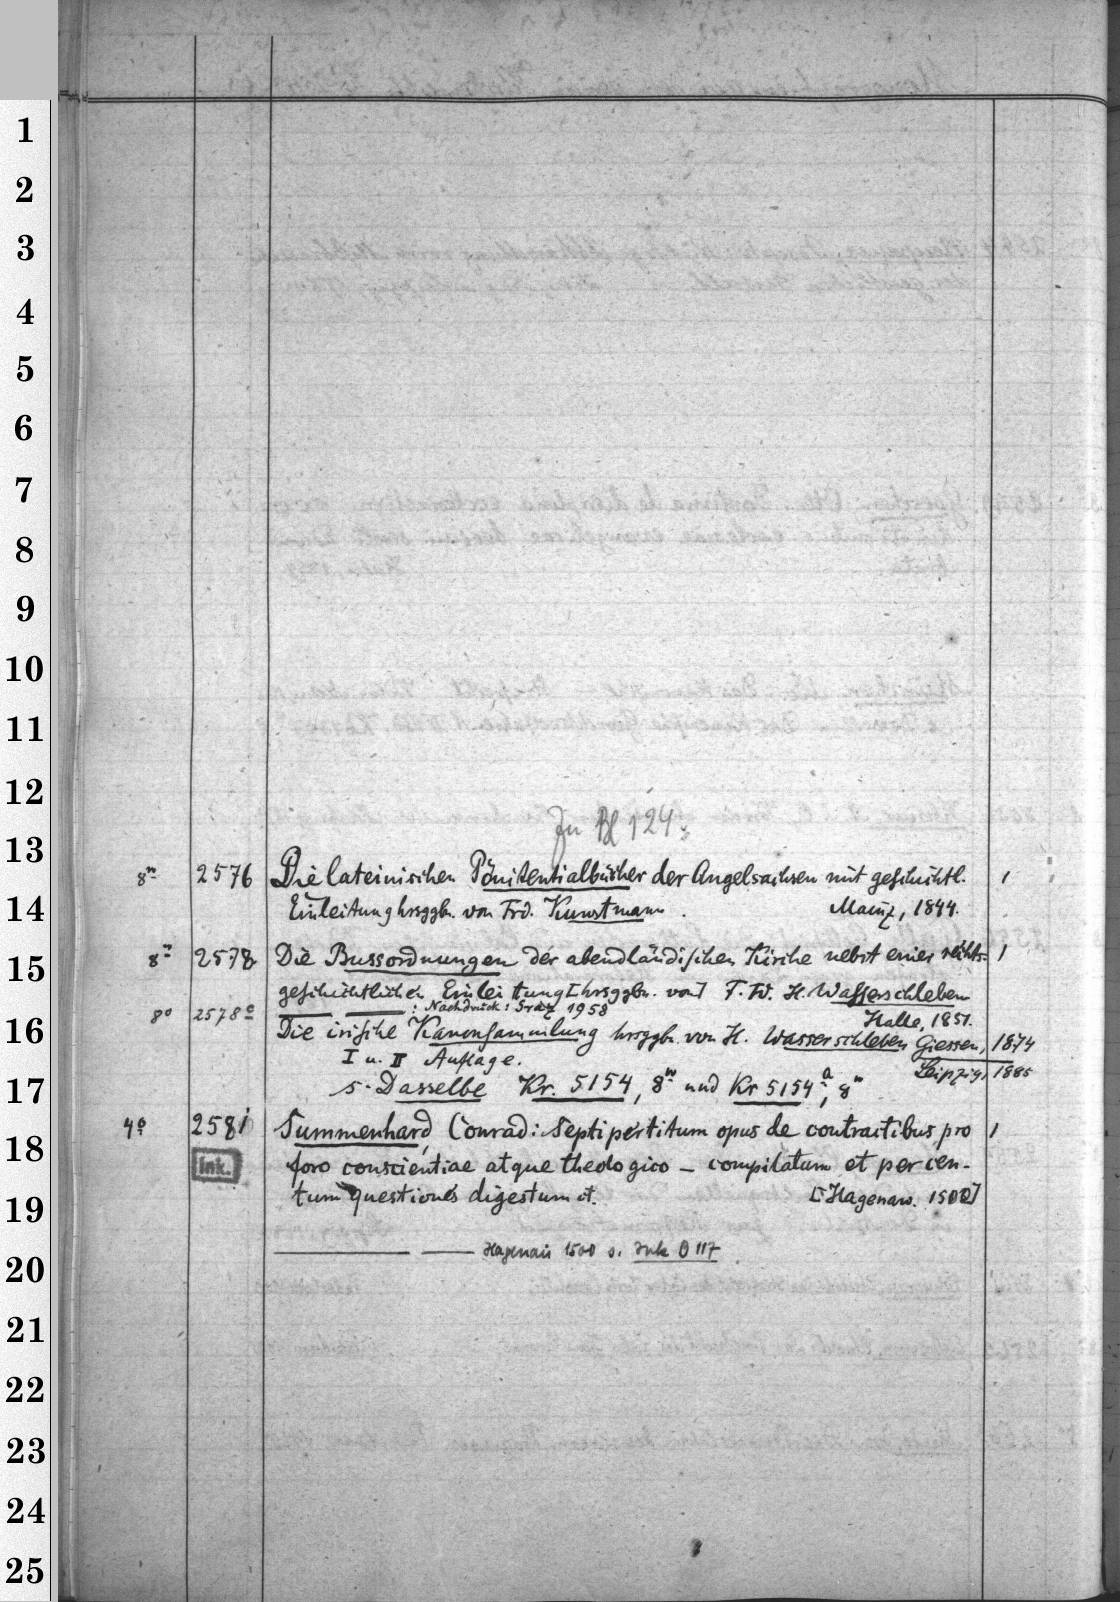 1
2
3
4
5
6
7
8
9
10
11
12
Zu Bl 124
13
8º 2576 Die lateinischen Pönitentialbücher der Angelsachsen mit geschichtl. 1
14
Einleitung hrsggb. von Frd. Kunstmann. Mainz, 1844.
15
8º 2578 Die Bussordnungen der abendländischen Kirche nebst einer rechts- 1
geschichtlichen Einleitung [hrsggbn. von] F. W. H. Wasserschleben
8º 2578ª : Nachdruck: Graz 1958
Halle, 1851.
16
Die irische Kanonsammlung hrsggbn. von H. Wasserschleben Giessen, 1874
I u. II Auflage. Leipzig, 1885
17
s. Dasselbe Kr. 5154, 8º und Kr 5154ª, 8º
4º 2581 Summenhard, Conrad: Septipertitum opus de contractibus pro 1
18
Ink. foro conscientiae atque theologico – compilatum et per cen-
19
tum questiones digestum et. [Hagenaw. 1500]
Hagenau 1500 s. Ink O 117
20
21
22
23
24
25